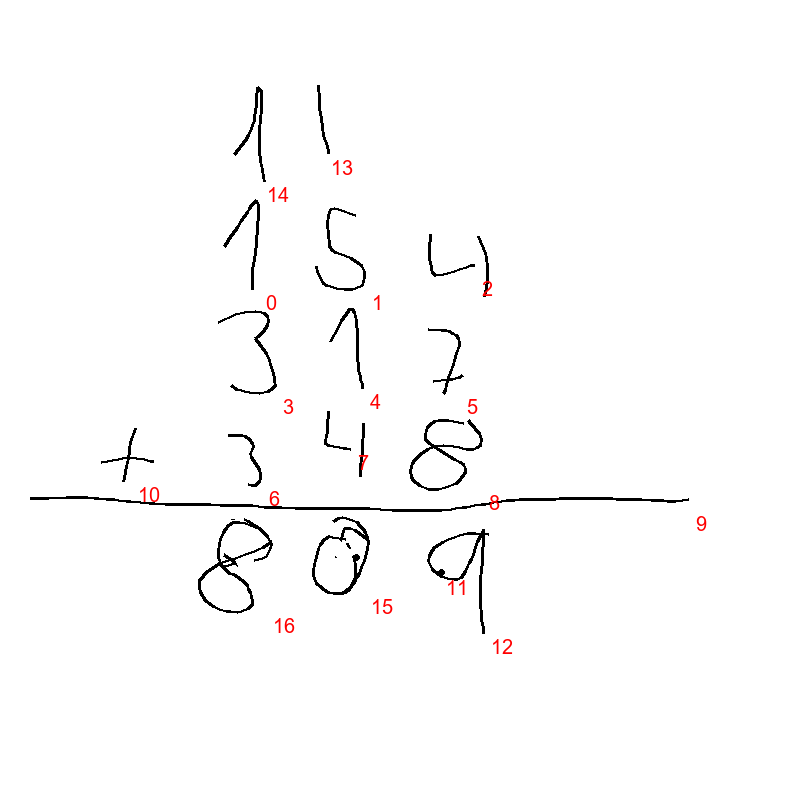 1 1
14 13
1 5 4
0 1 2
3 1 7
3 4 5
+ 3 4 8
10 6 7 8
9
8 0 9
16 15 11
12